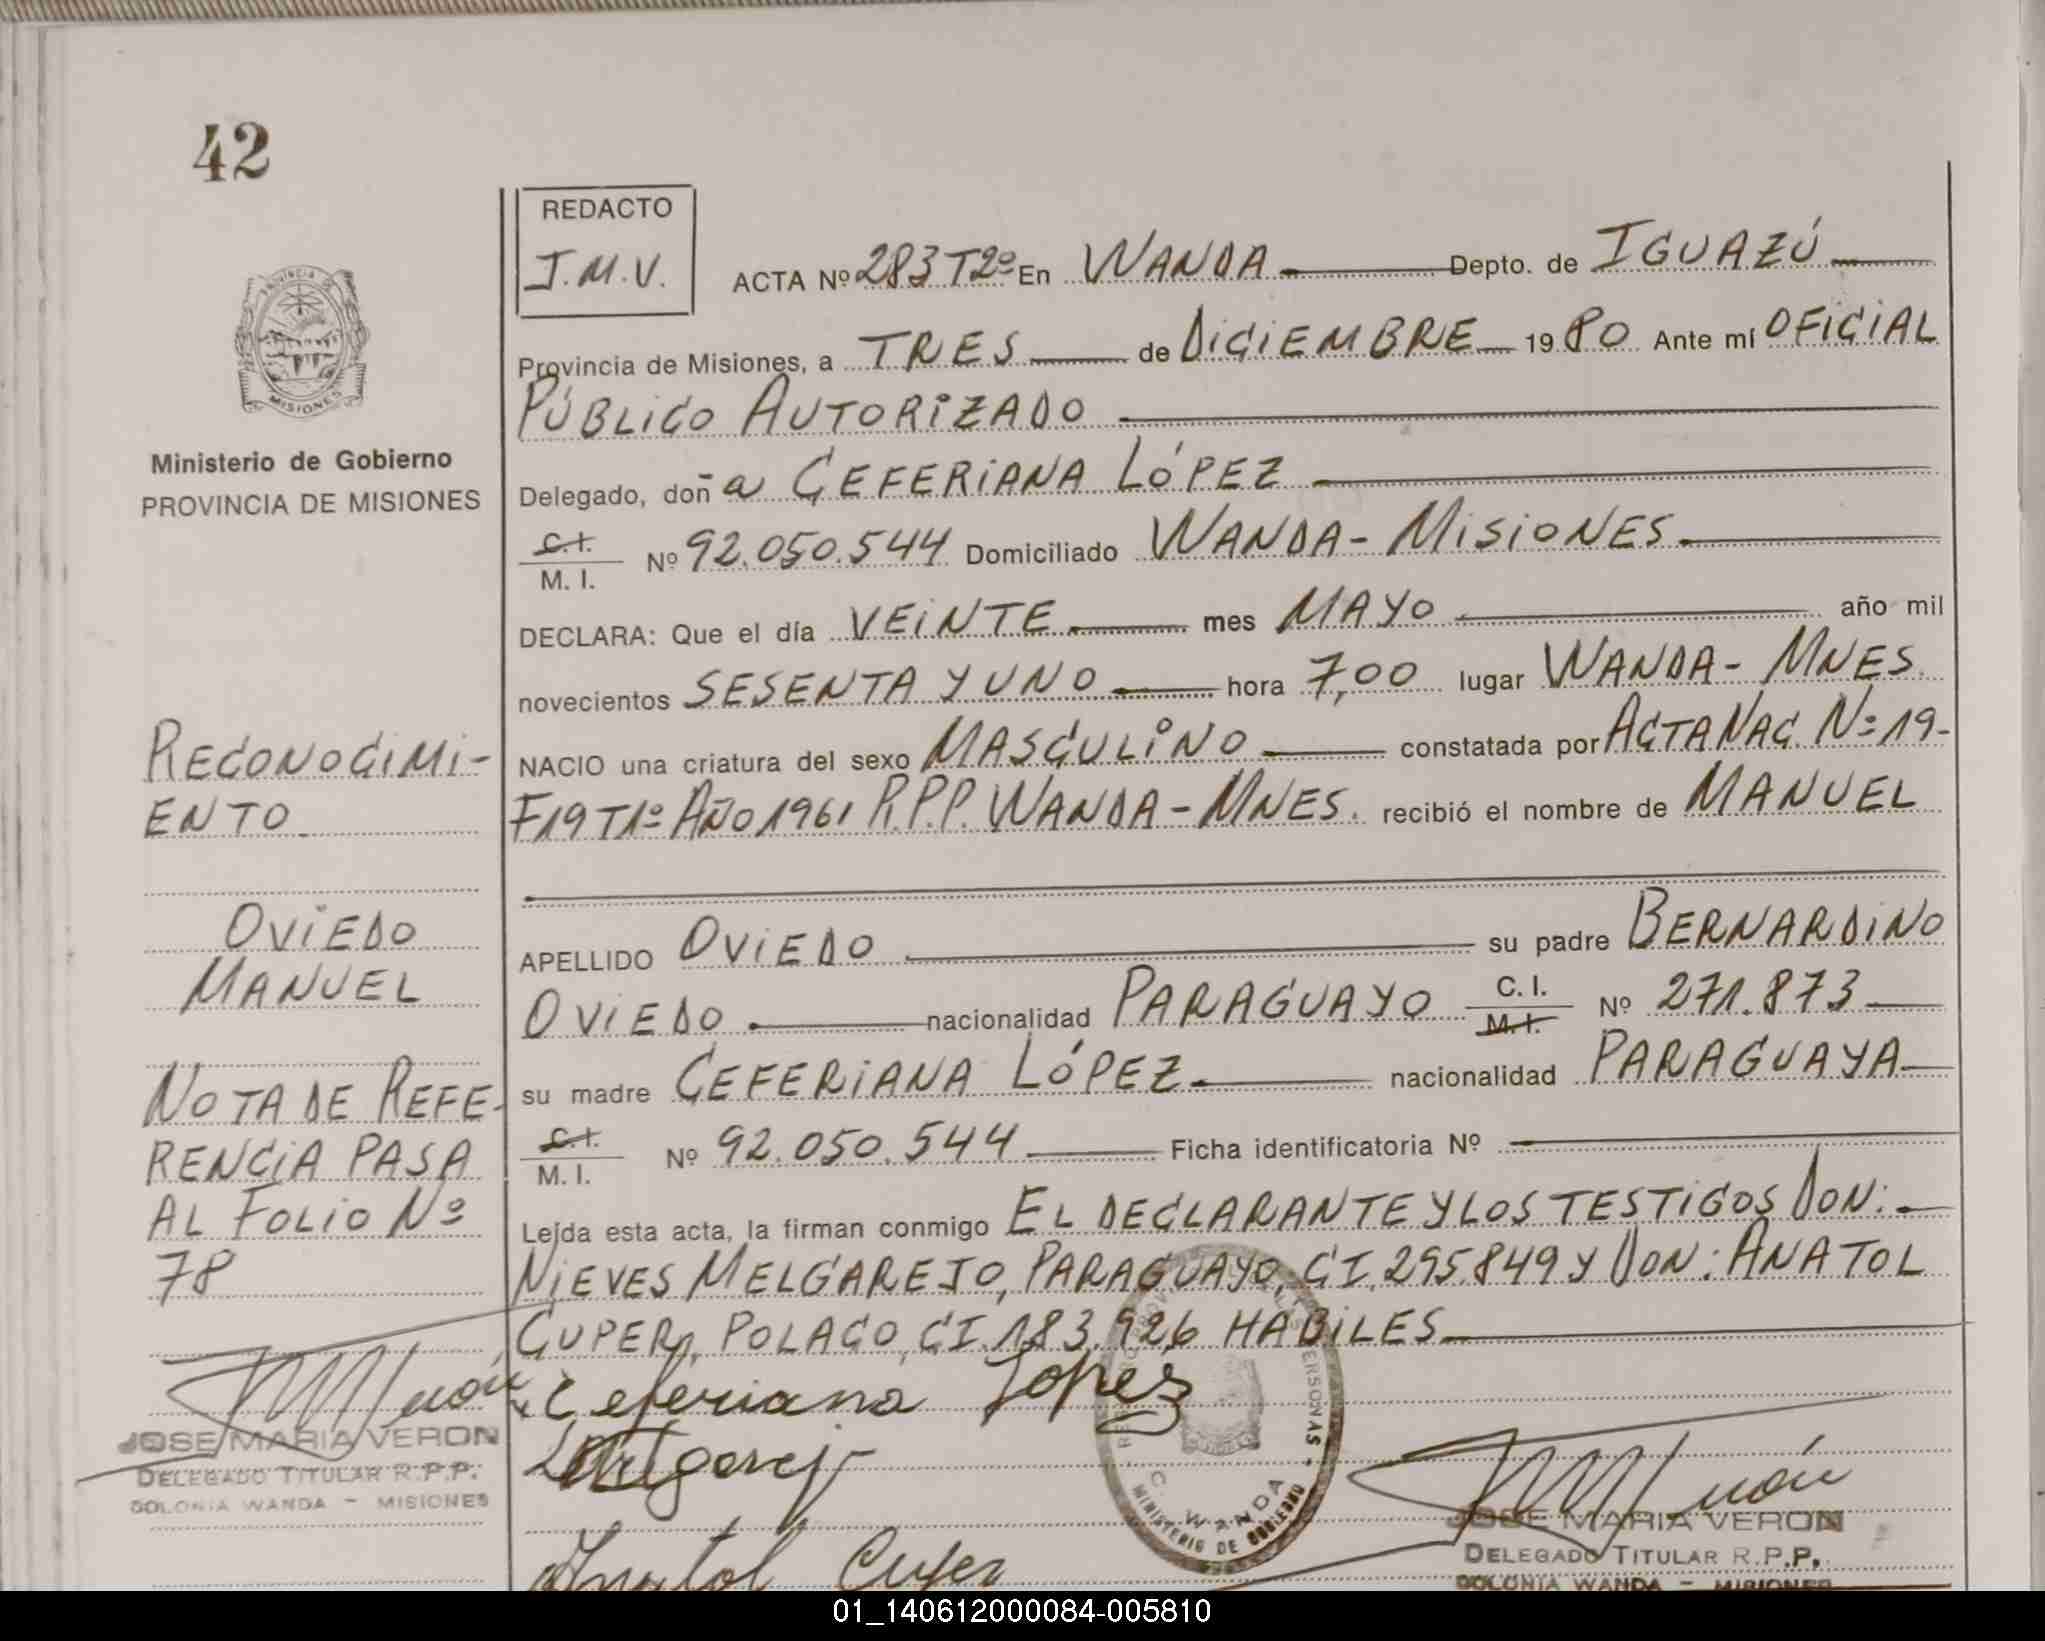 42
REDACTO
J.M.V.
ACTA Nº 283 T2º En WANDA Depto. de IGUAZÚ
Provincia de Misiones, a TRES de DICIEMBRE 1980 Ante mí OFICIAL
PÚBLICO AUTORIZADO
Delegado, doña CEFERIANA LÓPEZ
C.I.
M. I. Nº 92.050.544 Domiciliado WANDA - MISIONES
DECLARA: Que el día VEINTE mes MAYO año mil
novecientos SESENTA Y UNO hora 7,00 lugar WANDA - MNES.
NACIO una criatura del sexo MASCULINO constatada por ACTA NAC. Nº 19-
F19 T1º AÑO 1961 R.P.P. WANDA - MNES. recibió el nombre de MANUEL
APELLIDO OVIEDO su padre BERNARDINO
OVIEDO nacionalidad PARAGUAYO C. I.
M. I. Nº 271.873
su madre CEFERIANA LÓPEZ nacionalidad PARAGUAYA
C.I.
M. I. Nº 92.050.544 Ficha identificatoria Nº
Leída esta acta, la firman conmigo EL DECLARANTE Y LOS TESTIGOS DON:
NIEVES MELGAREJO, PARAGUAYO, CI. 295.849 Y DON: ANATOL
CUPER, POLACO, CI. 183.926 HABILES
Ceferiana Lopez
Melgarejo
Anatol Cuper
PROVINCIA DE
MISIONES
Ministerio de Gobierno
PROVINCIA DE MISIONES
RECONOCIMI-
ENTO
OVIEDO
MANUEL
NOTA DE REFE-
RENCIA PASA
AL FOLIO Nº
78
JOSE MARIA VERON
DELEGADO TITULAR R.P.P.
COLONIA WANDA - MISIONES
C. WANDA
MINISTERIO DE GOBIERNO
JOSE MARIA VERON
DELEGADO TITULAR R.P.P.
COLONIA WANDA - MISIONES
01_140612000084-005810